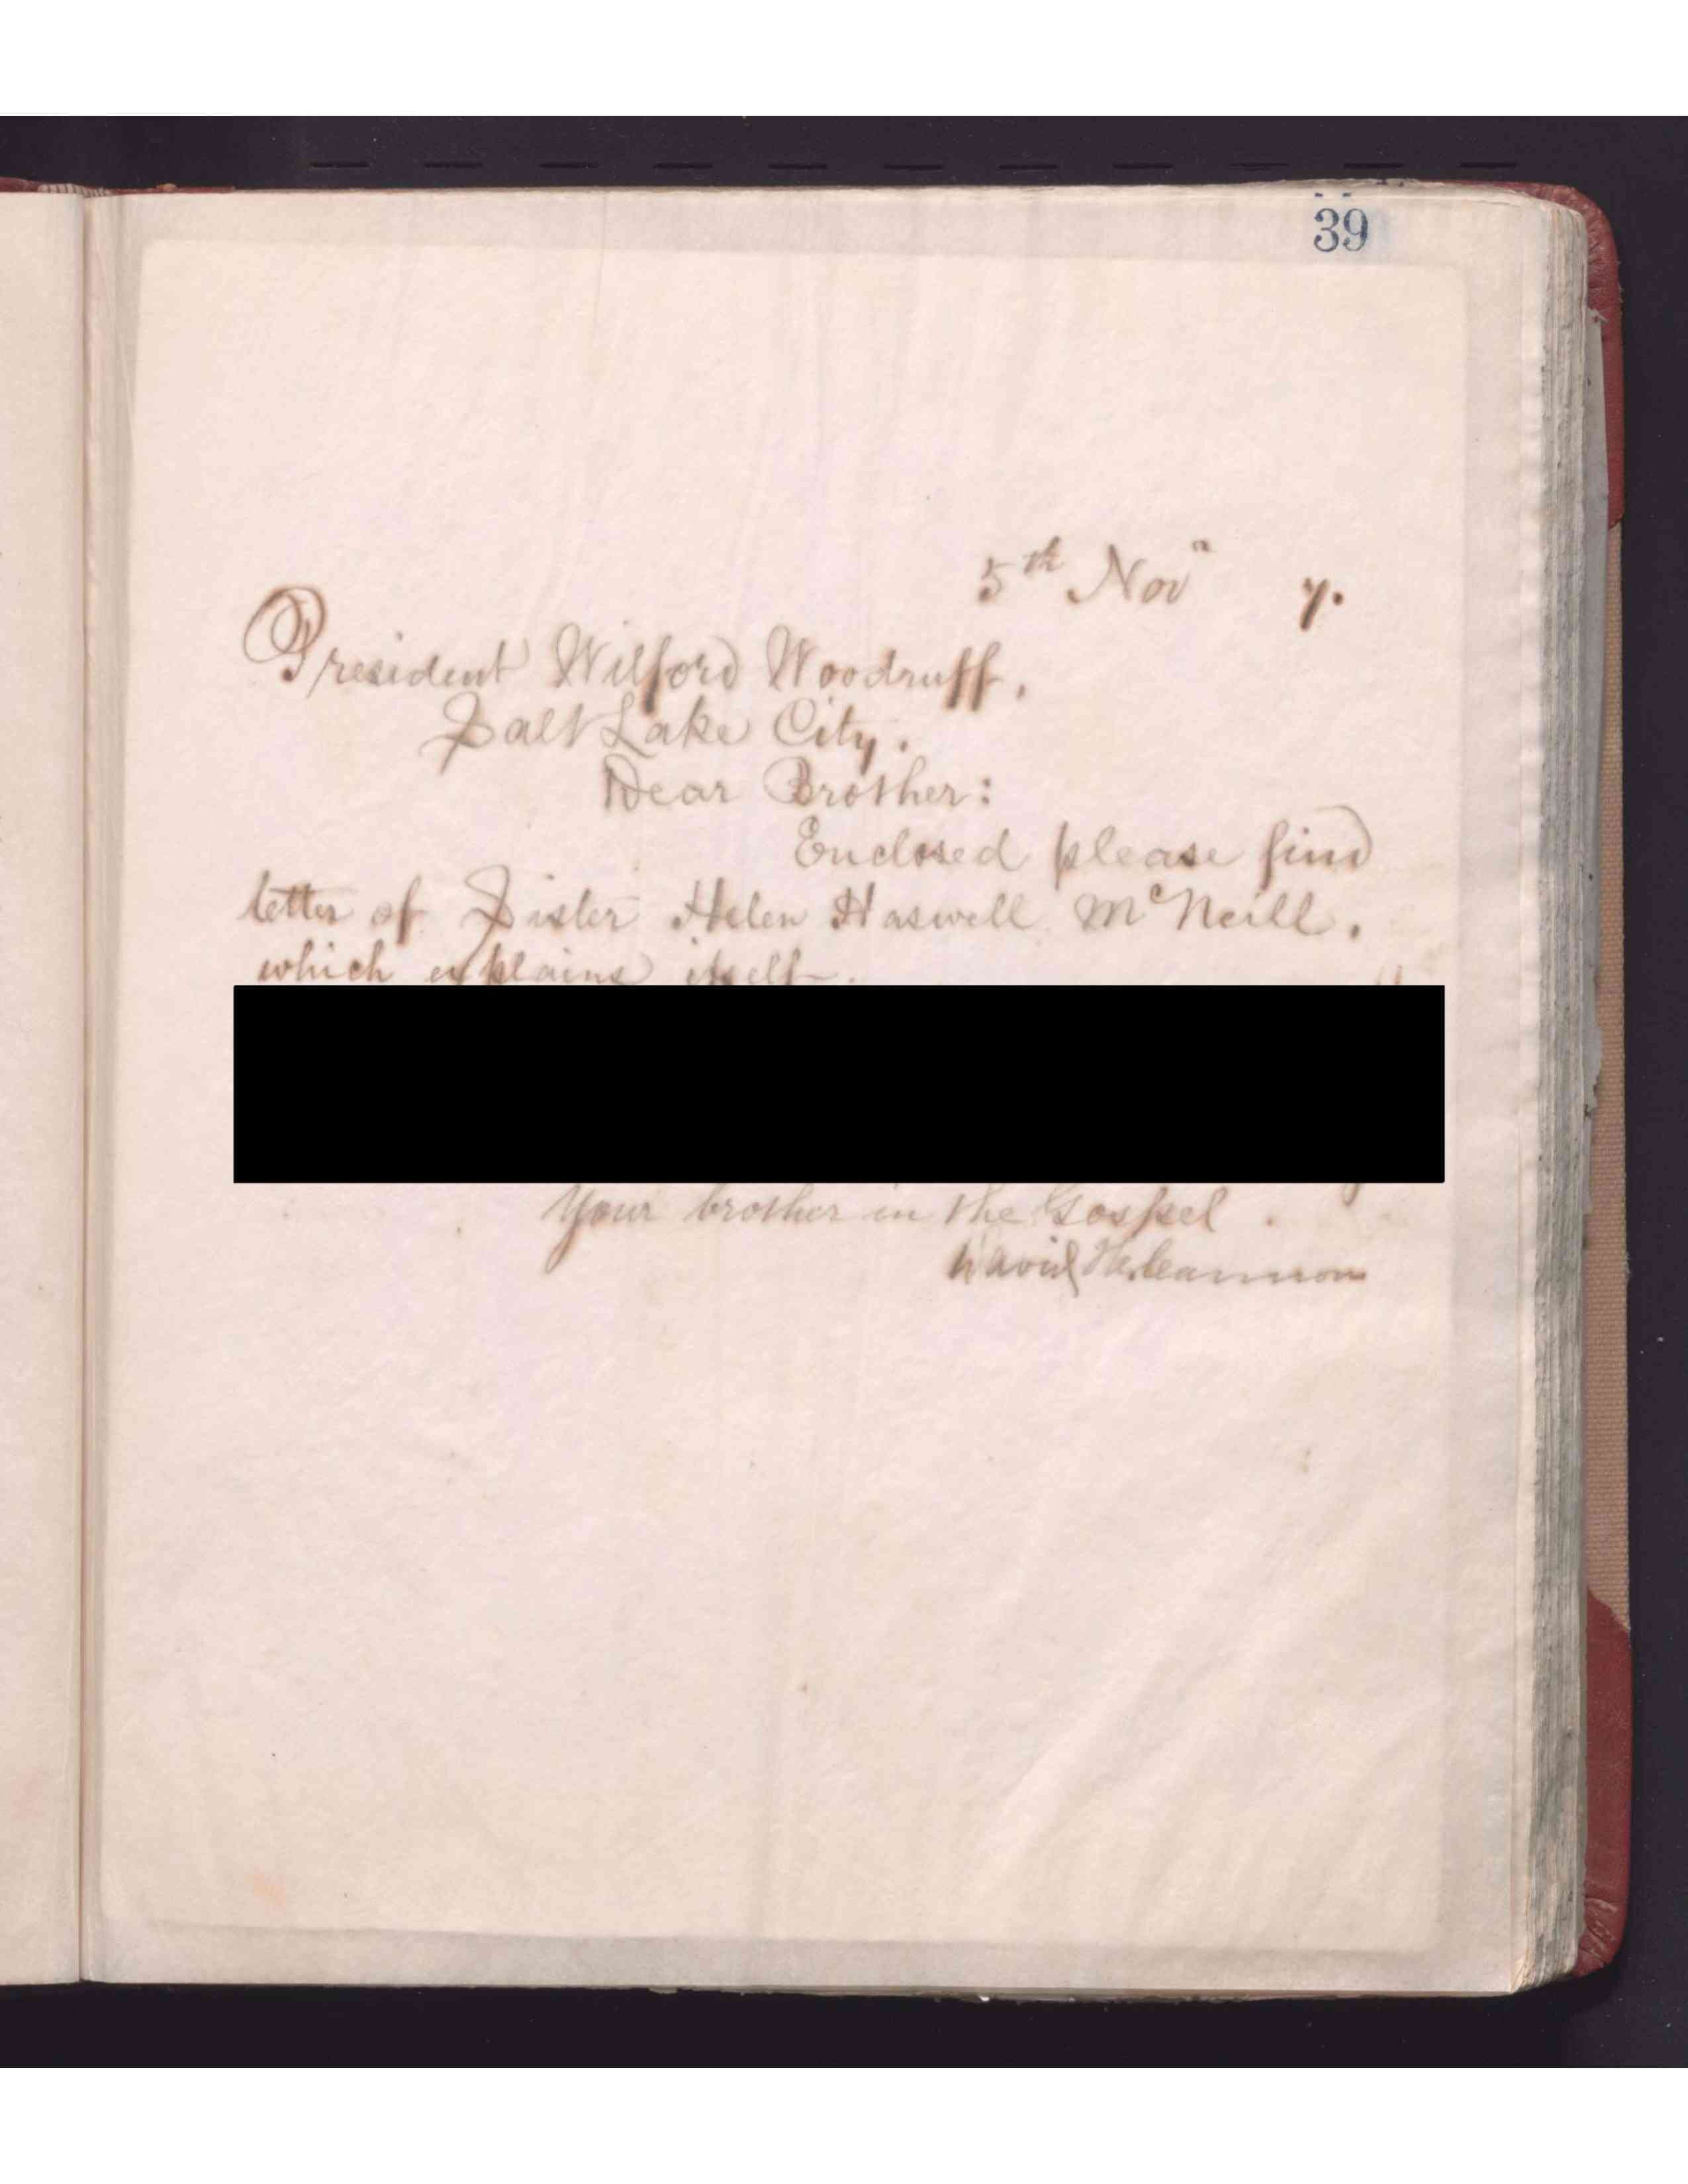 39
5th Novr 7.
President Wilford Woodruff,
Salt Lake City.
Dear Brother:
Enclosed please find
letter of Sister Helen Haswell McNeill.
which explains itself.
Your brother in the Gospel.
David H. Cannon